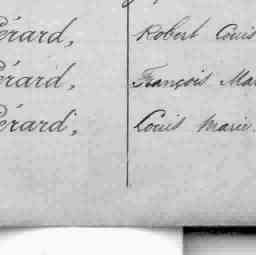 érard, Robert Louis
érard, François Ma
érard, Louis Marie